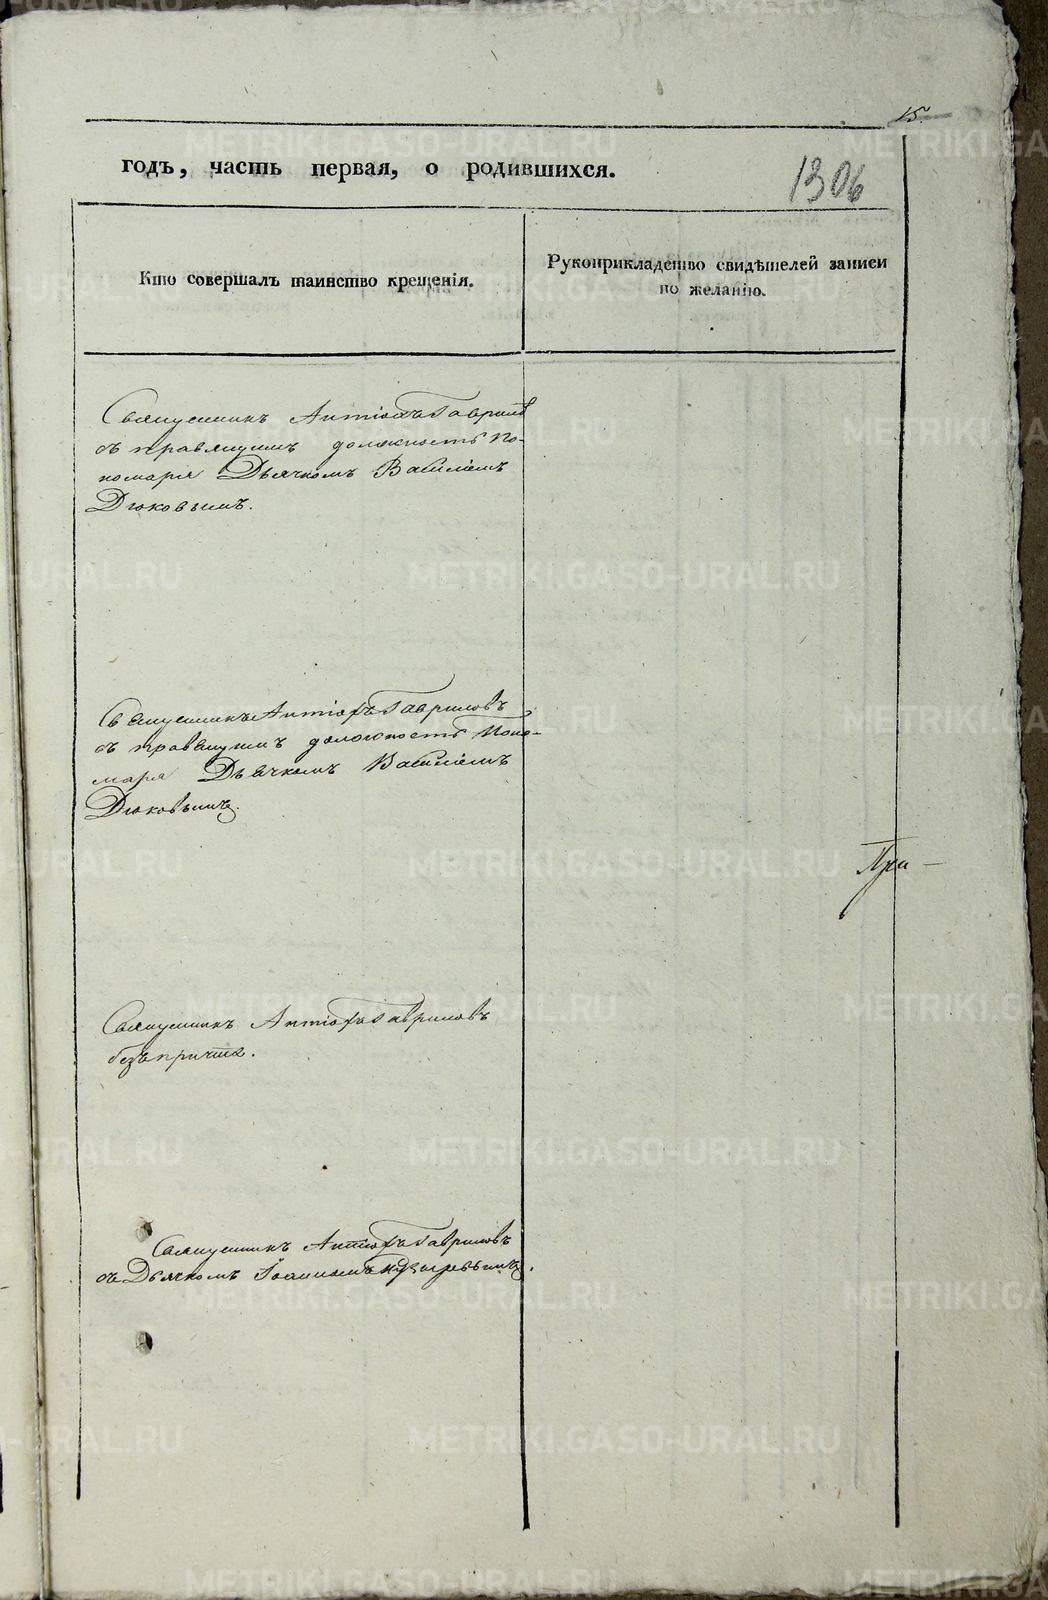 15.
годъ, часть первая, о родившихся.
1306
Кто совершалъ таинство крещенія.
Рукоприкладство свидѣтелей записи
по желанію.
Священникъ Антіохъ Гаврилов
съ правящимъ должность по-
номаря Дьячкомъ Василіемъ
Дюковымъ.
Священникъ Антіохъ Гавриловъ
съ правящимъ должность Поно-
маря Дьячкомъ Василіемъ
Дюковымъ.
При-
Священникъ Антіохъ Гавриловъ
безъ причта.
Священникъ Антіохъ Гавриловъ
съ Дьячкомъ Іоанномъ
METRIKI.GASO-URAL.RU